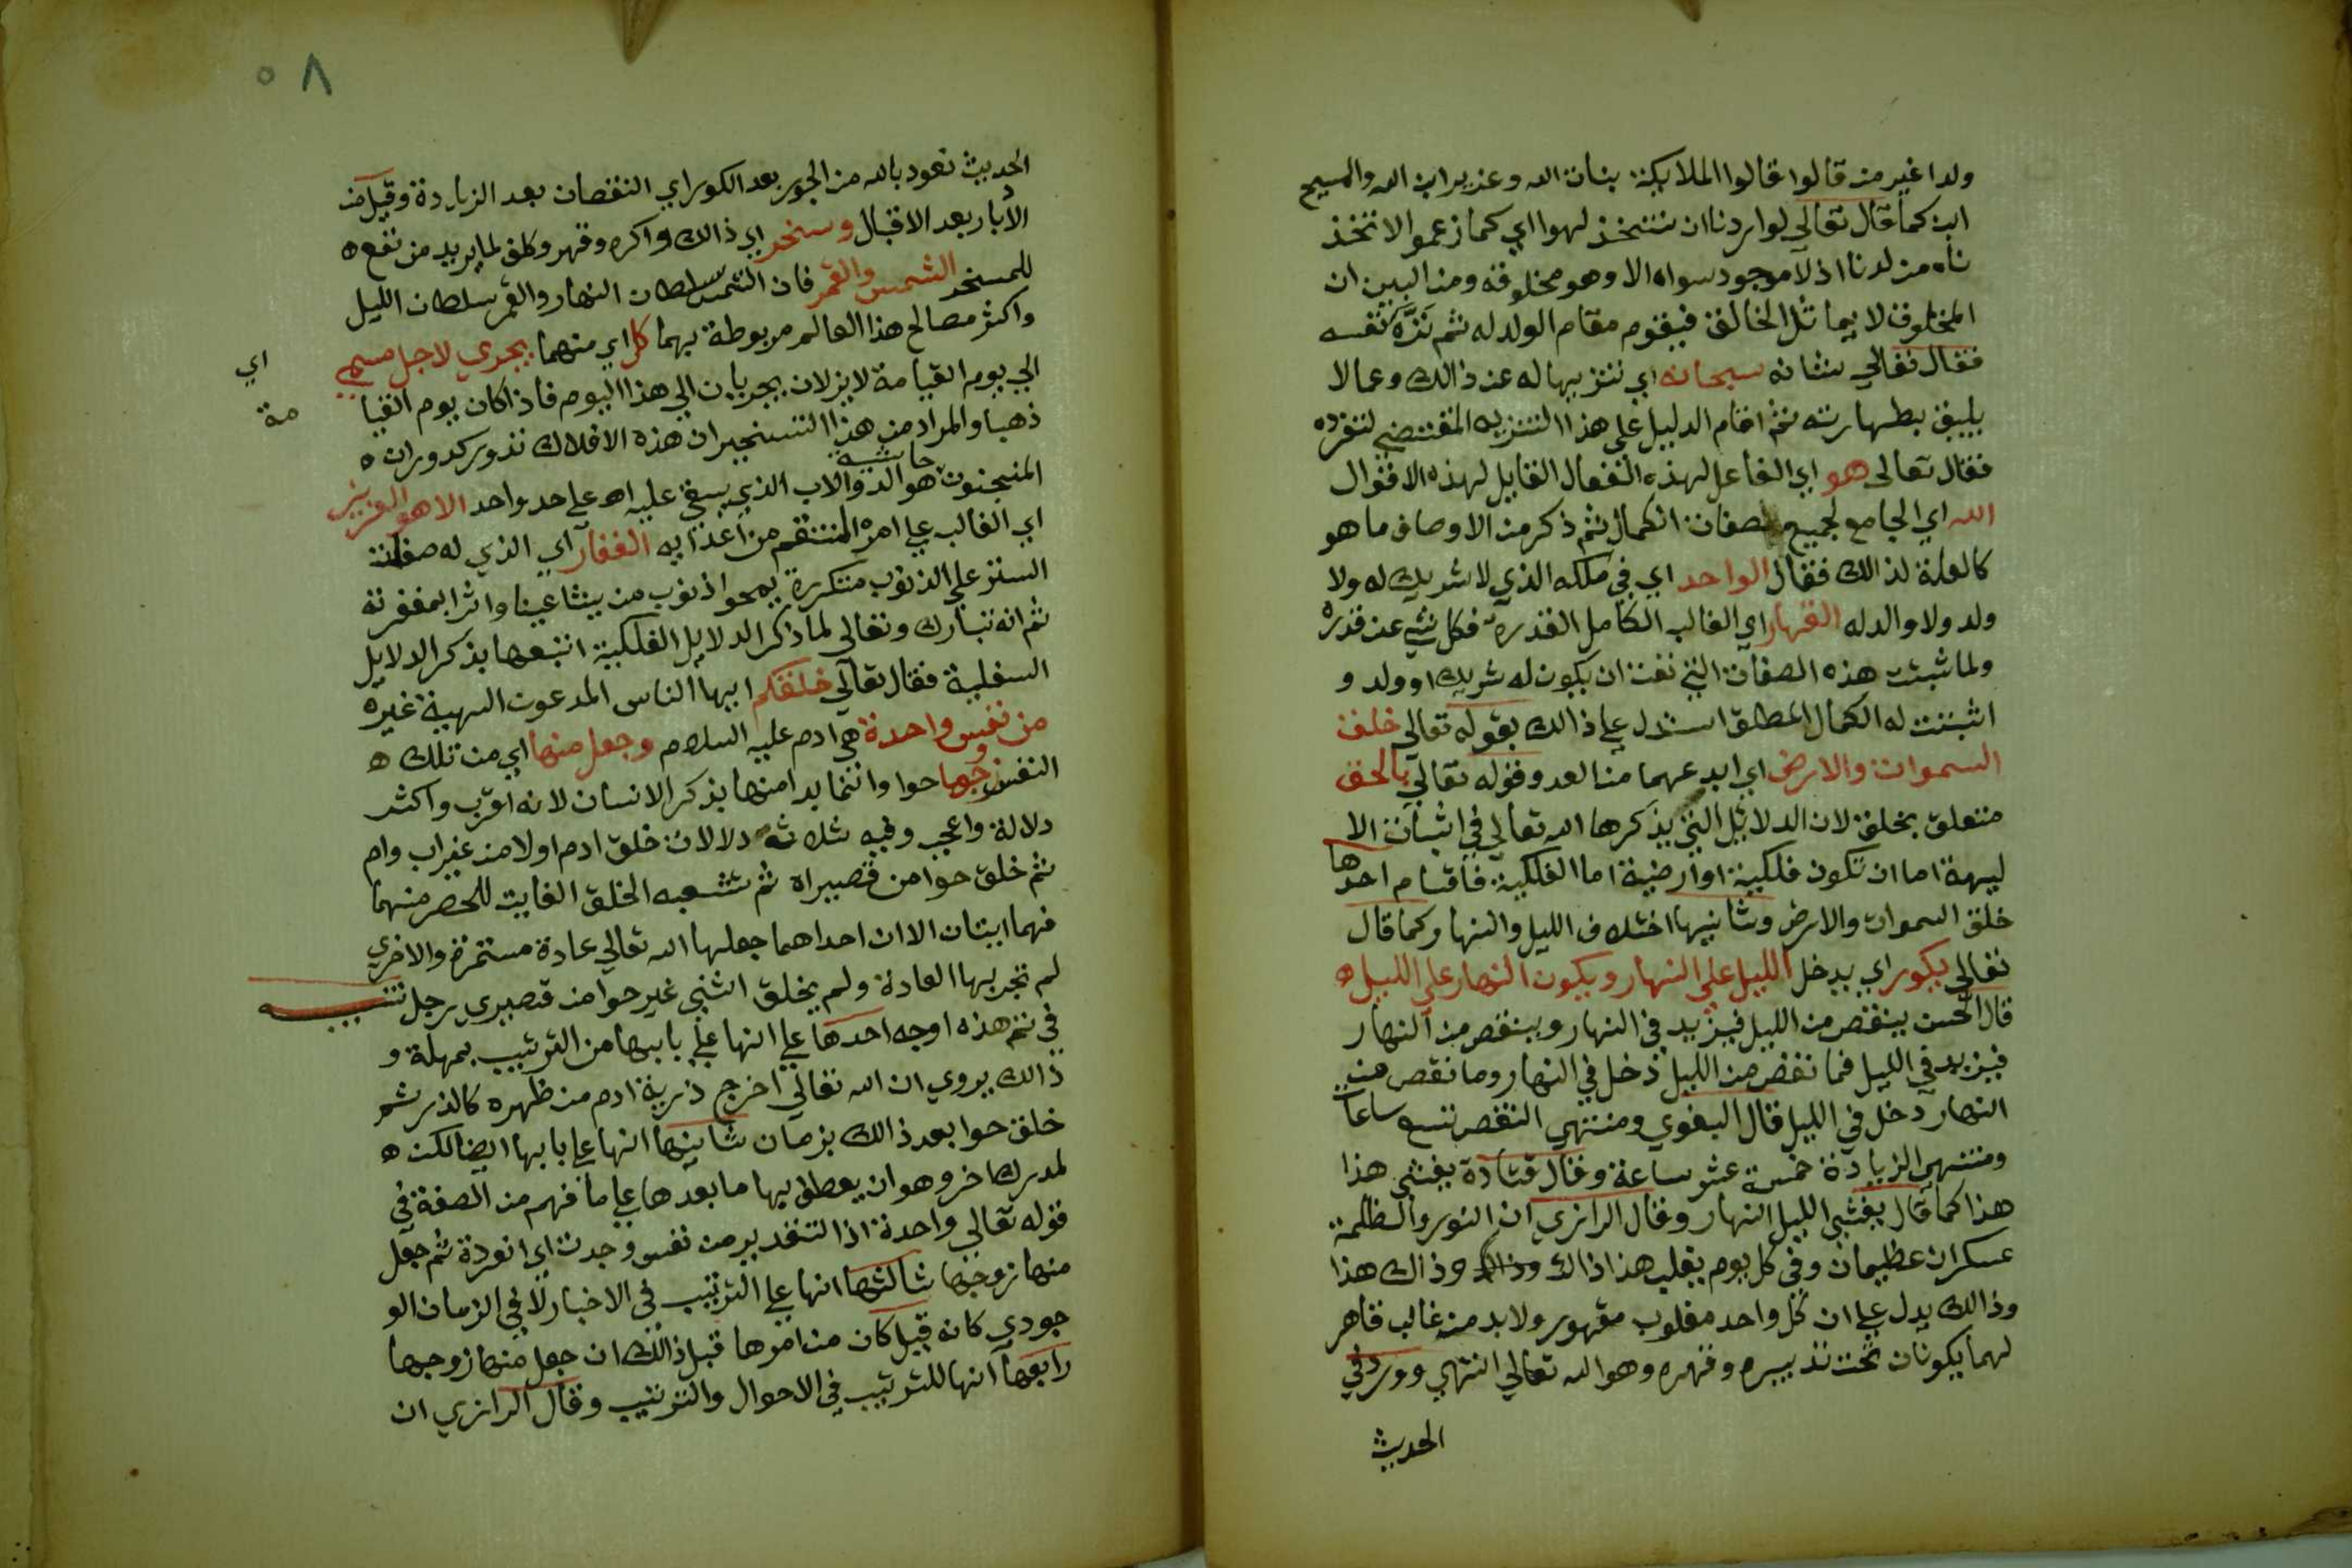 ولدا غير من قالوا قالوا الملايكة بنات الله وعزير ابن الله والمسيح
ابن كما قال تعالى لو اردنا ان نتخذ لهوا اي كما زعموا لاتخذ
ناه من لدنا اذ لا موجود سواه الا وهو مخلوقه ومن البين ان
المخلوق لا يماثل الخالق فيقوم مقام الولد له ثم نزه نفسه
فقال تعالى شانه سبحانه اي تنزيها له عن ذالك وعمالا
يليق بطهارته ثم اقام الدليل على هذا التنزيه المقتضي لتفرده
فقال تعالى هو اي الفاعل لهذه الفعال القايل لهذه الاقوال
الله اي الجامع لجميع صفات الكمال ثم ذكر من الاوصاف ما هو
كالعلة لذالك فقال الواحد اي في ملكه الذي لا شريك له ولا
ولد ولا والد له القهار اي الغالب الكامل القدرة فكل شي عن قدره
ولما ثبتت هذه الصفات التي نفت ان يكون له شريك او ولد و
اثبتت له الكمال المطلق استدل على ذالك بقوله تعالى خلق
السموات والارض اي ابدعهما من العد وقوله تعالى بالحق
متعلق بخلق لان الدلائل التي يذكرها الله تعالى في اثبات الا
ليهة اما ان تكون فلكية او ارضية اما الفلكية فاقسام احدها
خلق السموات والارض وثانيها اختلاف الليل والنهار كما قال
تعالى يكور اي يدخل الليل على النهار ويكون النهار على الليل ه
قال الحسن ينقص من الليل فيزيد في النهار وينقص من النهار
فيزيد في الليل فما نقص من الليل دخل في النهار وما نقص من
النهار دخل في الليل قال البغوي ومنتهى النقص تسع ساعات
ومنتهى الزيادة خمسة عشر ساعة وقال قتادة يغشى هذا
هذا كما قال يغشي الليل النهار وقال الرازي ان النور والظلمة
عسكران عظيمان وفي كل يوم يغلب هذا اذاك وذاك هذا
وذالك يدل على ان كل واحد مغلوب مقهور ولا بد من غالب قاهر
لهما يكونان تحت تدبيره وقهره وهو الله تعالى انتهى وورد في
الحديث
٥٨
الحديث نعوذ بالله من الجور بعد الكور اي النقصان بعد الزيادة وقيل من
الأبار بعد الاقبال وسخر اي ذالك واكره وقهر وكلف لما يريد من نفع ه
للمسخر الشمس والقمر فان الشمس سلطان النهار والقمر سلطان الليل
واكثر مصالح هذا العالم مربوطة بهما كل اي منهما يجري لاجل مسمى
اي
الى يوم القيامة لا يزلان يجريان الى هذا اليوم فاذا كان يوم القيا
مة
ذهبا والمراد من هذا التسخير ان هذه الافلاك تدور كدوران ه
حاشية
المنجنون هو الدوالاب الذي يسقي عليه اه على حد واحد الا هو العزيز
اي الغالب على امره المنتقم من اعدايه الغفار اي الذي له صفات
الستر على الذنوب متكررة يمحوا ذنوب من يشا عينا واثرا بمغفرته
ثم انه تبارك وتعالى لما ذكر الدلايل الفلكية اتبعها بذكر الدلايل
السفلية فقال تعالى خلقكم ايها الناس المدعون الهية غيره
من نفس واحدة هي ادم عليه السلام وجعل منها اي من تلك ه
النفس زوجها حوا وانما بدا منها بذكر الانسان لانه اقرب واكثر
دلالة واعجب وفيه ثلاثة دلالات خلق ادم اولا من غير اب وام
ثم خلق حوا من قصيراه ثم شعبه الخلق الفايت للحصر منهما
فهما ايتان الا ان احداهما جعلها الله تعالى عادة مستمرة والاخرى
لم تجر بها العادة ولم يخلق انثى غير حوا من قصيري رجل تنبيه
في ثم هذه اوجه احدها على انها على بابها من الترتيب بمهلة و
ذالك يروي ان الله تعالى اخرج ذرية ادم من ظهره كالذر ثم
خلق حوا بعد ذالك بزمان ثانيها انها على بابها ايضا لكن ه
لمدرك اخر وهو ان يعطف بها ما بعدها على ما فهم من الصفة في
قوله تعالى واحدة اذ التقدير من نفس وحدت اي انفردة ثم جعل
منها زوجها ثالثها انها على الترتيب في الاخبار لا في الزمان الو
جودي كانه قيل كان من امرها قبل ذالك ان جعل منها زوجها
رابعها انها للترتيب في الاحوال والترتيب وقال الرازي ان